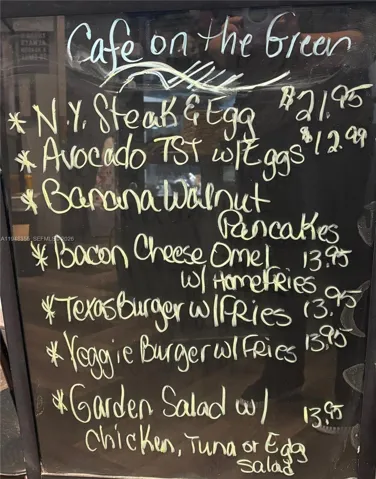 Cafe on the Green
* N.Y. Steak & Egg $21.95
* Avocado TST w/Eggs $12.99
* Banana Walnut
Pancakes
* Bacon Cheese Omel 13.95
w/ Home Fries
* Texas Burger w/ Fries 13.95
* Veggie Burger w/ Fries 13.95
* Garden Salad w/ 13.95
Chicken, Tuna or Egg
Salad